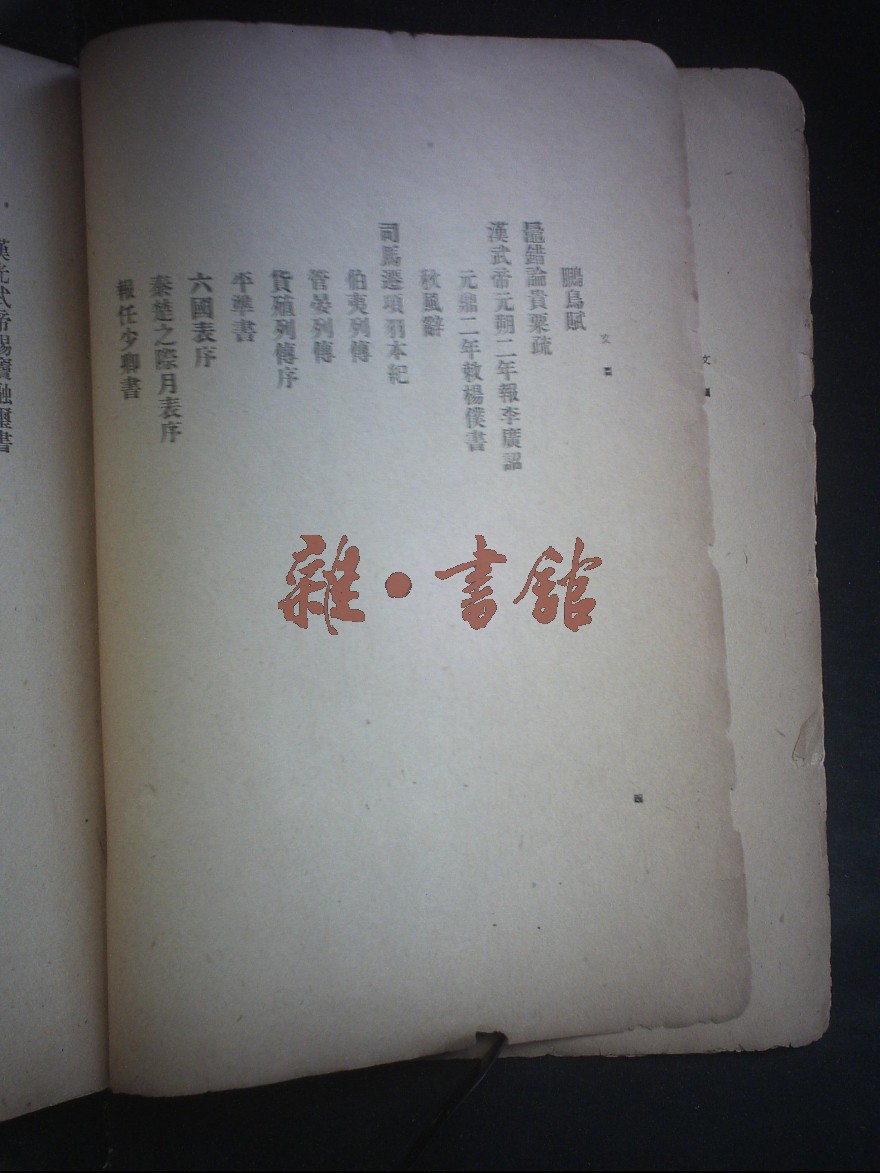 文
鵩鳥賦
鼂錯論貴粟疏
漢武帝元朔二年報李廣詔
元鼎二年敕楊僕書
秋風辭
司馬遷項羽本紀
伯夷列傳
管晏列傳
貨殖列傳序
平準書
六國表序
秦楚之際月表序
報任少卿書
漢光武帝賜竇融璽書
雜·書館